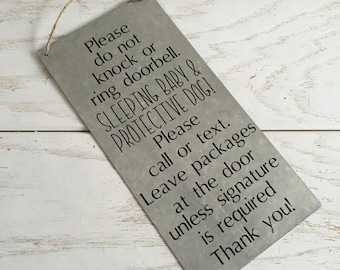 Please
do not
knock or
ring doorbell.
SLEEPING BABY &
PROTECTIVE DOG!
Please
call or text.
Leave packages
at the door
unless signature
is required
Thank you!